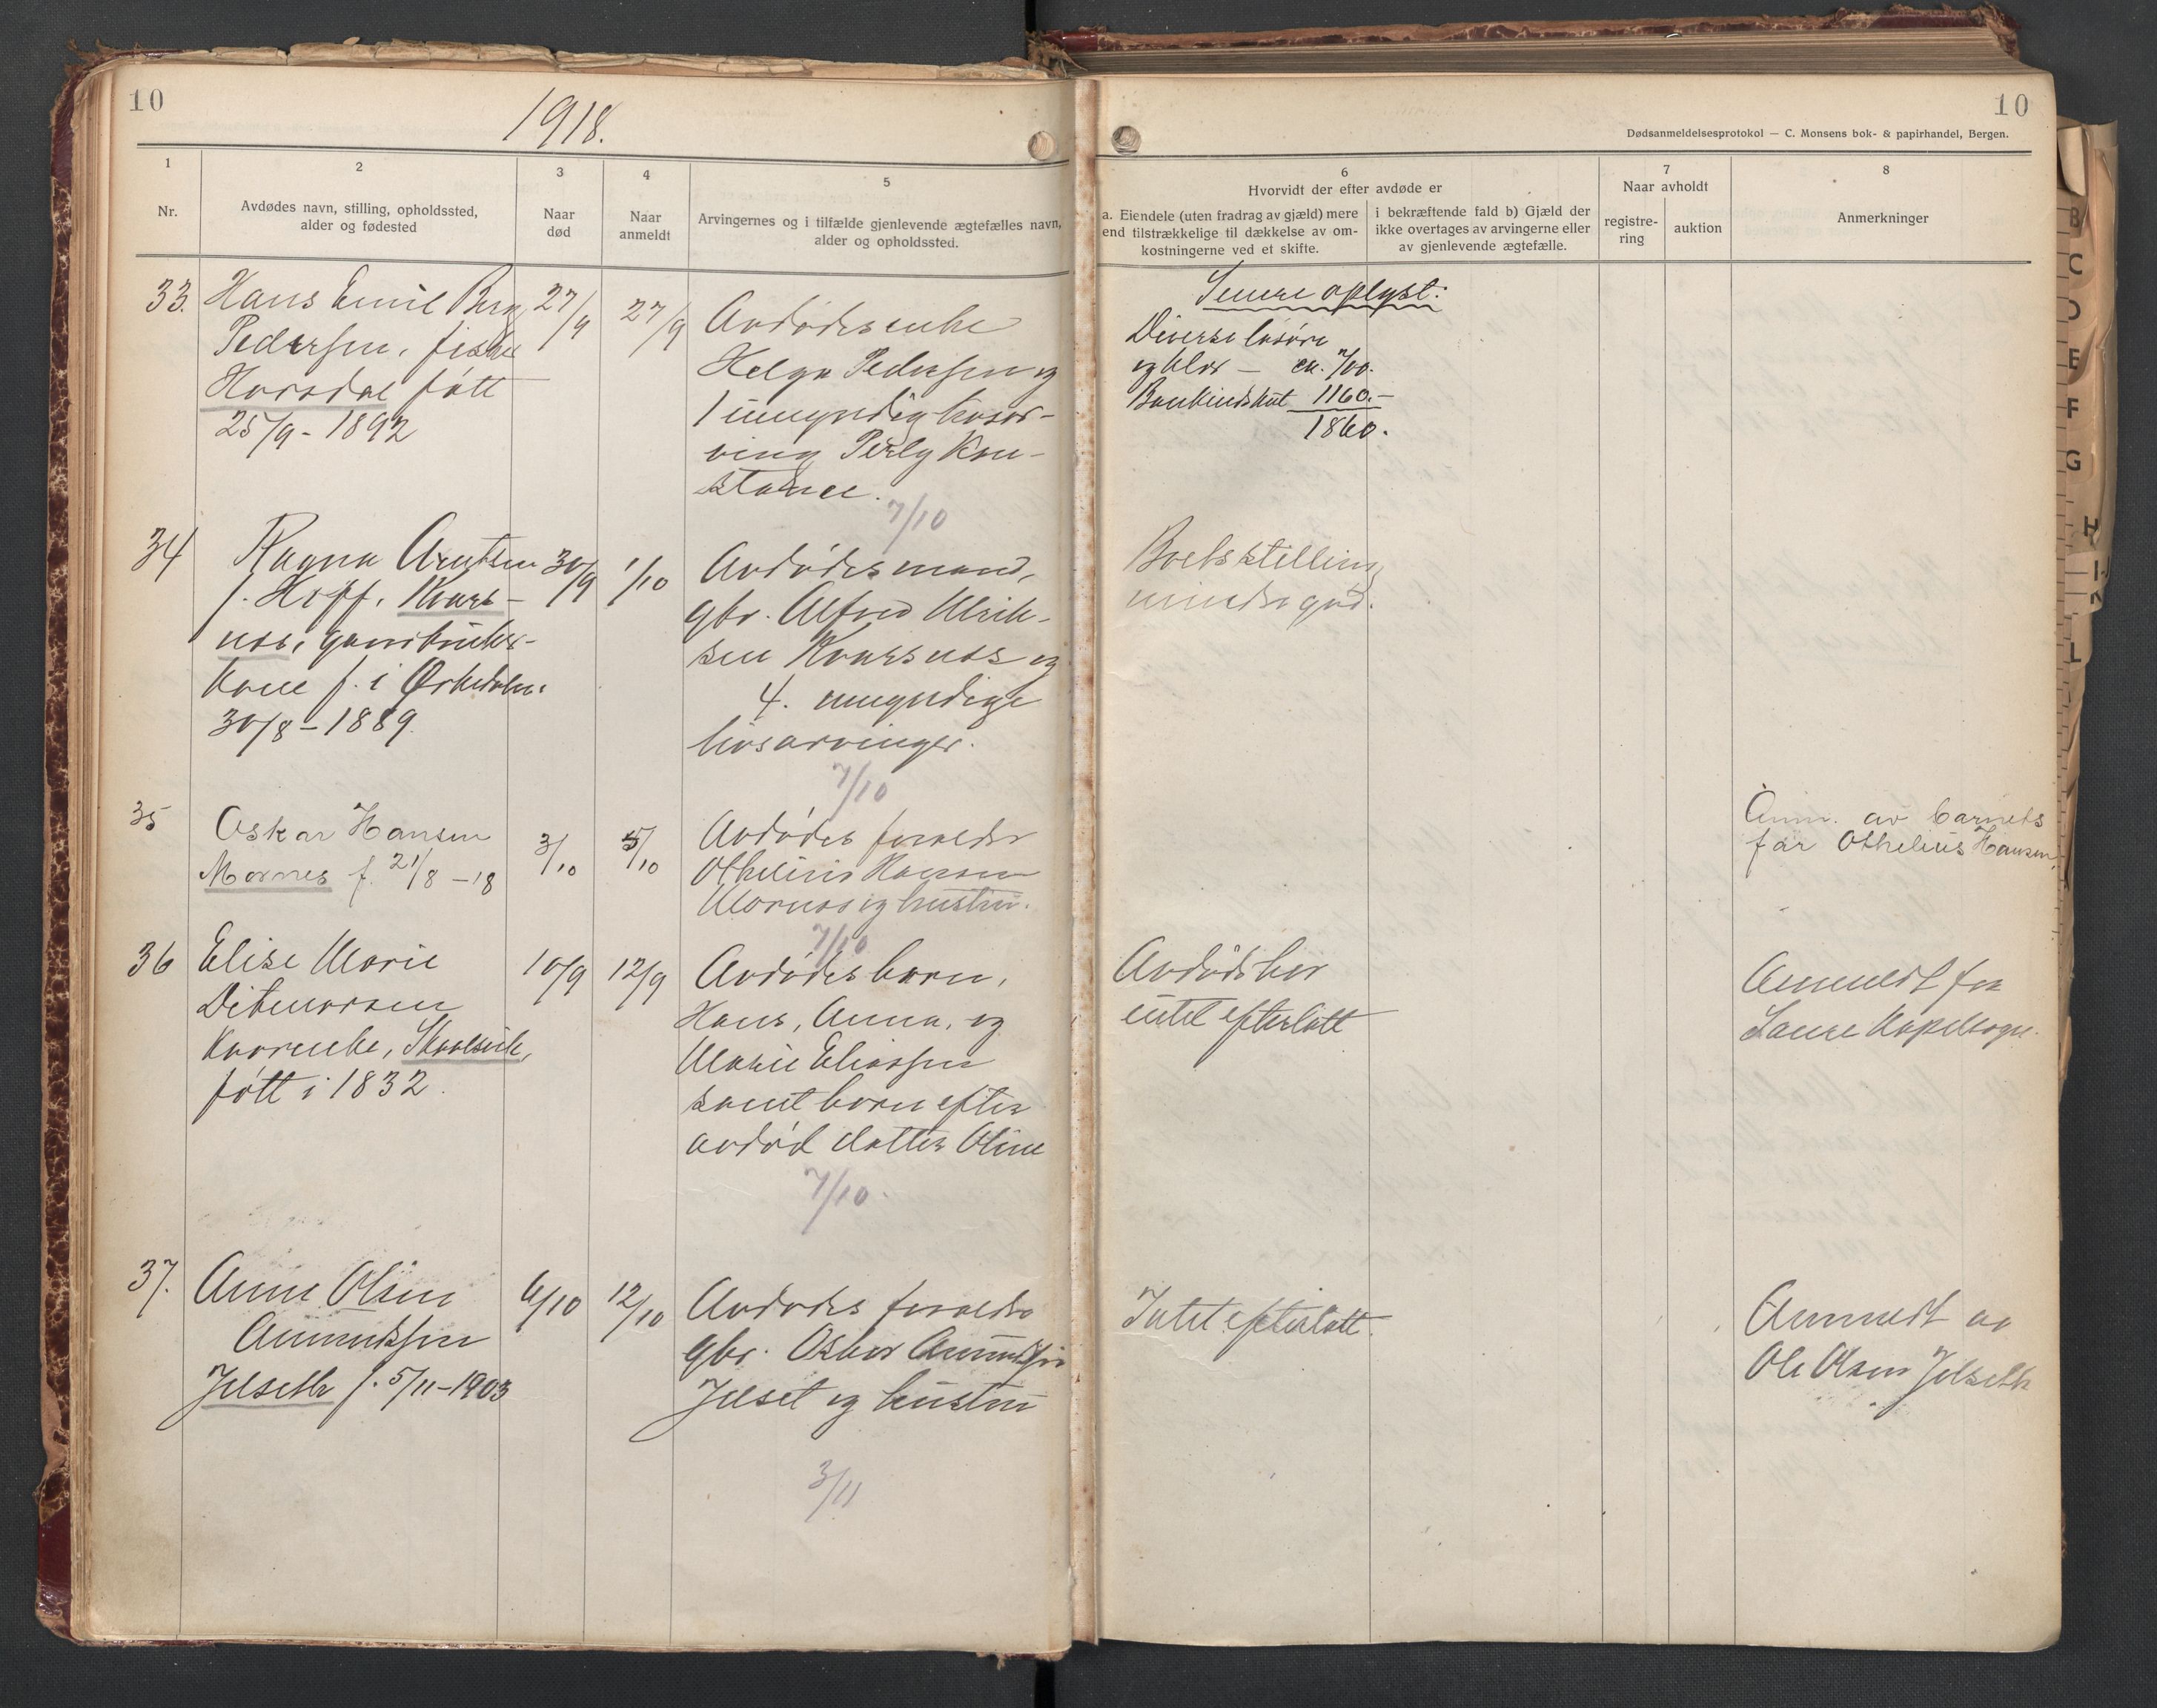 10
1918.
1
2
3
4
5
Nr.
Avdødes navn, stilling, opholdssted,
alder og fødested
Naar
død
Naar
anmeldt
Arvingernes og i tilfælde gjenlevende ægtefælles navn,
alder og opholdssted.
33. Hans Emil Berg 27/9 27/9 Avdødes enke
Pedersen, fisker Helga Pedersen og
Horsdal født 1 umyndig livsar-
25/9 - 1892 ving Perly Kon-
stance.
7/10
34 Ragna Arntsen 30/9 1/10 Avdødes mand,
f. Hoff, Kvars- gbr. Alfred Ulrik-
nes, gaardbruker- sen Kvarsnes og
kone f. i Ørkedalen 4. umyndige
30/8 - 1889. livsarvinger.
7/10
35 Oskar Hansen 3/10 5/10 Avdødes forældre
Mornes f. 21/8 - 18 Othelius Hansen
Mornes og hustru.
7/10
36 Elise Marie 10/9 12/9 Avdødes barn,
Ditmarsen Hans, Anna, og
Kaarenke, Skaalsvik, Marie Eliassen
født i 1832. samt barn efter
avdød datter Oline
7/10.
37. Anne Olsen 6/10 12/10 Avdødes forældre
Amundsen gbr. Oskar Amundsen
Jelseth f. 5/11 - 1903 Jelset og hustru
3/11
10
Dødsanmeldelsesprotokol — C. Monsens bok- & papirhandel, Bergen.
6
Hvorvidt der efter avdøde er
a. Eiendele (uten fradrag av gjæld) mere
end tilstrækkelige til dækkelse av om-
kostningerne ved et skifte.
i bekræftende fald b) Gjæld der
ikke overtages av arvingerne eller
av gjenlevende ægtefælle.
7
Naar avholdt
registre-
ring
auktion
8
Anmerkninger
Senere oplyst:
Diverse løsøre
og klær - ca. 700.
Bankindskut 1160.-
1860.
Boets stilling
mindre god.
Anm. av barnets
far Othelius Hansen,
Avdøde har Anmeldt fra
intet efterlatt Saure Kapelsogn.
Intet efterlatt. Anmeldt av
Ole Olsen Jelseth
B
C
D
E
F
G
H
I
K
L